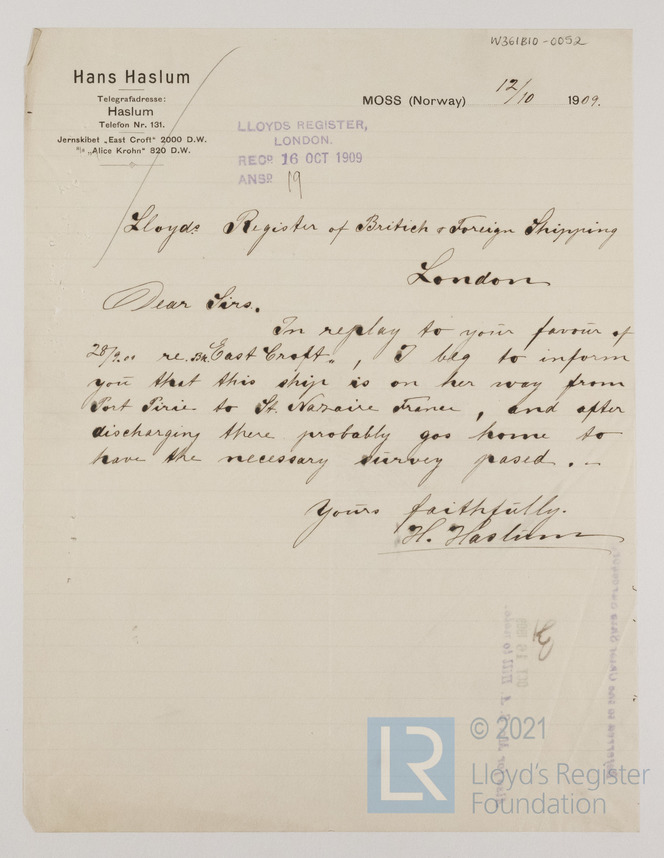 W361B10-0052
Hans Haslum
Telegrafadresse:
Haslum
Telefon Nr. 131.
Jernskibet „East Croft" 2000 D.W.
„Alice Krohn" 820 D.W.
MOSS (Norway) 12/10 1909.
LLOYDS REGISTER,
LONDON.
RECD. 16 OCT 1909
ANSD. 19
Lloyds Register of British & Foreign Shipping
London
Dear Sirs.
In replay to your favour of
28/9 re. Bk. "East Croft", I beg to inform
you that this ship is on her way from
Port Pirie to St. Nazaire France, and after
discharging there probably gos home to
have the necessary survey pased. –
Yours faithfully.
H. Haslum
OCT 16 1909
LR
© 2021
Lloyd's Register
Foundation